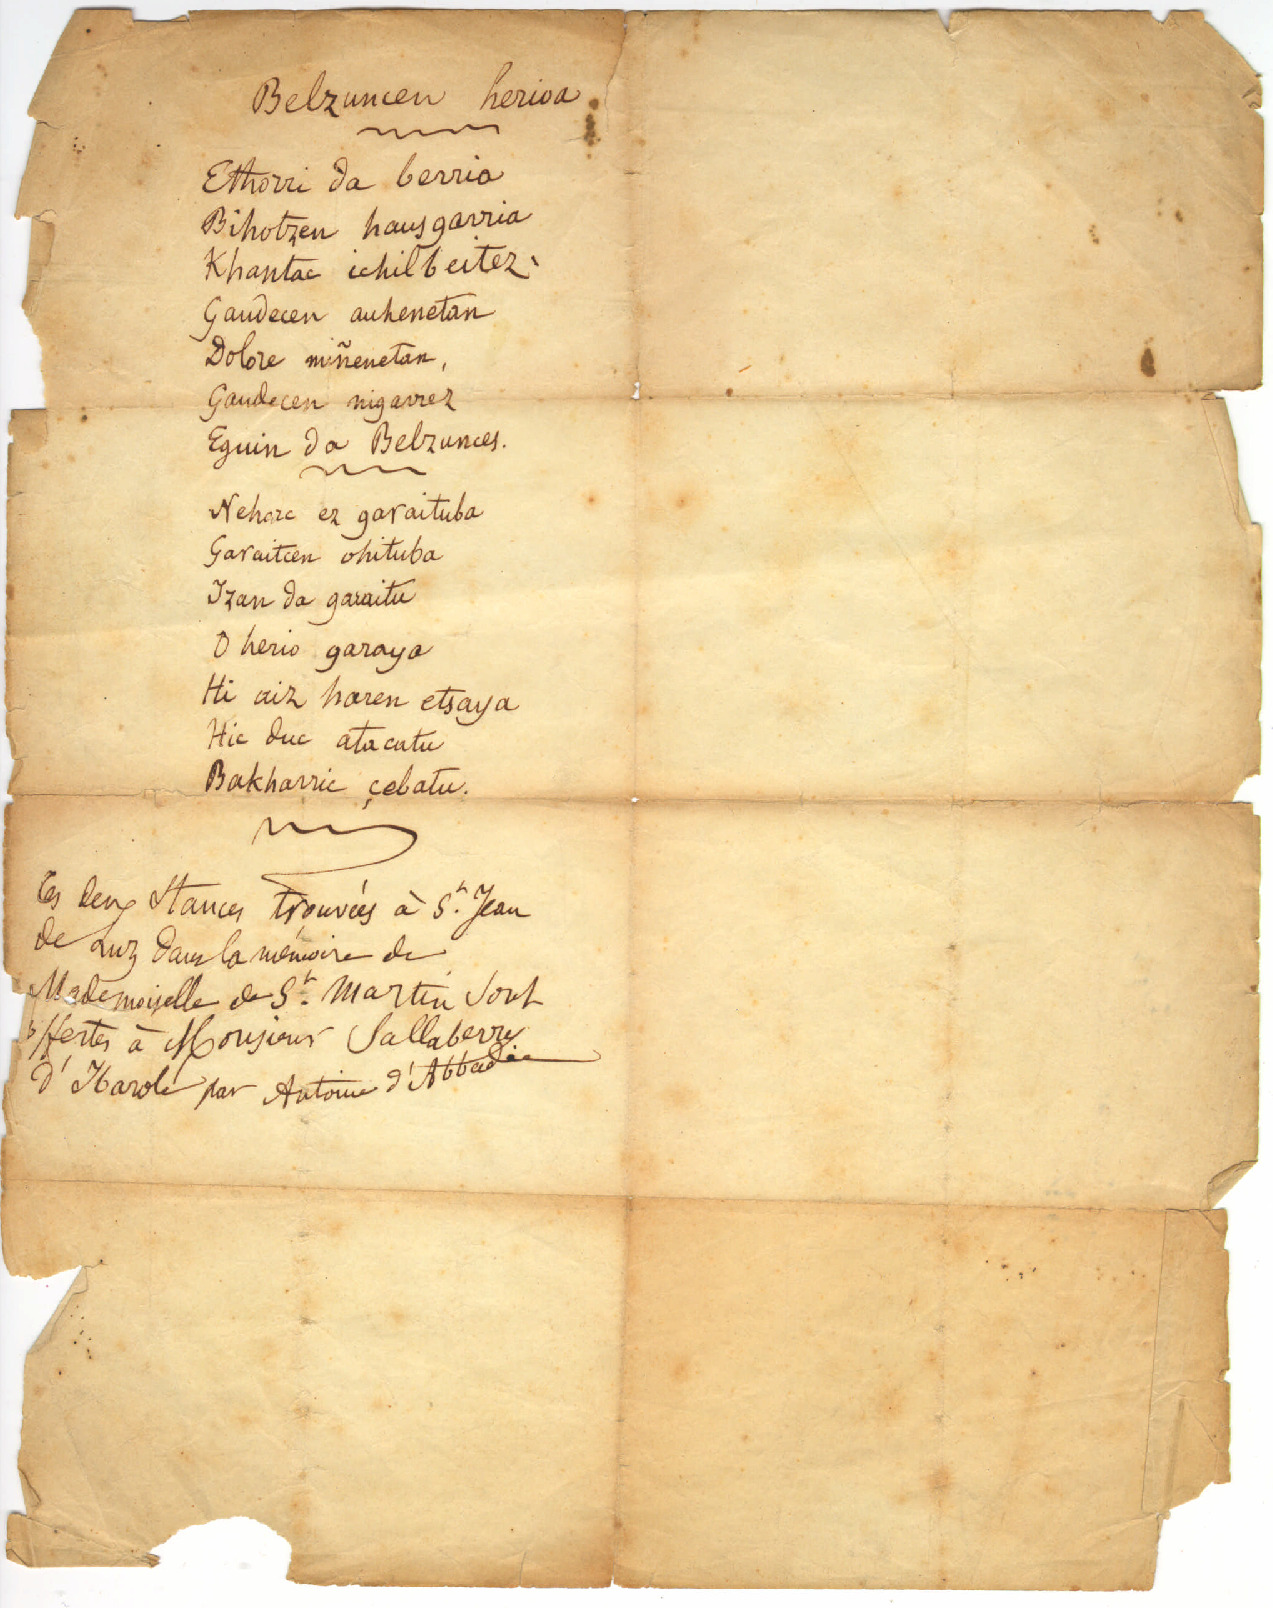 Belzuncen herioa
Ethorri da berria
Bihotzen hausgarria
Khantac ichilbeitez.
Gaudecen auhenetan
Dolore miñenetan,
Gaudecen nigarrez
Eguin da Belzunces.
Nehorc ez garaituba
Garaitcen ohituba
Izan da garaitu
O herio garaya
Hi aiz haren etsaya
Hic duc atacatu
Bakharric çebatu.
Ces deux Stances trouvées à St. Jean
de Luz dans la mémoire de
Mademoiselle de St. Martin sont
offertes à Monsieur Sallaberry
d'Ibarole par Antoine d'Abbadie